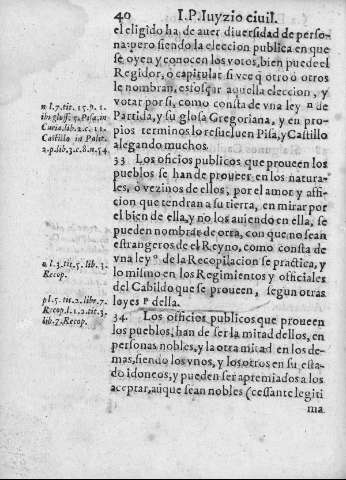 40 I.P. Iuyzio civil.
el eligido ha de auer diuersidad de perso-
na: pero siendo la eleccion publica en que
se oyen y conocen los votos, bien puede el
Regidor, o capitular si vee q̃ otro ó otros
le nombran, esforçar aquella eleccion, y
votar por si, como consta de vna ley ⁿ de
Partida, y su glosa Gregoriana, y en pro-
pios terminos lo resueluen Pisa, y Castillo
alegando muchos.
33 Los oficios publicos que proueen los
pueblos se han de proueer en los natura-
les, ò vezinos de ellos, por el amor y affi-
cion que tendran a su tierra, en mirar por
el bien de ella, y no los auiendo en ella, se
pueden nombrar de otra, con que no sean
estrangeros de el Reyno, como consta de
vna ley º de la Recopilacion se practica, y
lo mismo en los Regimientos y officiales
del Cabildo que se proueen, segun otras
leyes ᴾ della.
34 Los officios publicos que proueen
los pueblos, han de ser la mitad dellos, en
personas nobles, y la otra mitad en los de-
mas, siendo los vnos, y los otros en su esta-
do idoneos, y pueden ser apremiados a los
aceptar, aũque sean nobles (cessante legiti
ma
n l.7. tit. 15. p. 1.
ibi gloss. 5. Pisa, in
Curia, lib. 2. c. 11.
Castillo in Polit.
2. p. lib. 3. c. 8. n. 54.
o l. 3. tit. 5. lib. 3.
Recop.
p l. 5. tit. 2. libr. 7.
Recop. l. 1. 2. tit. 3.
lib. 7. Recop.